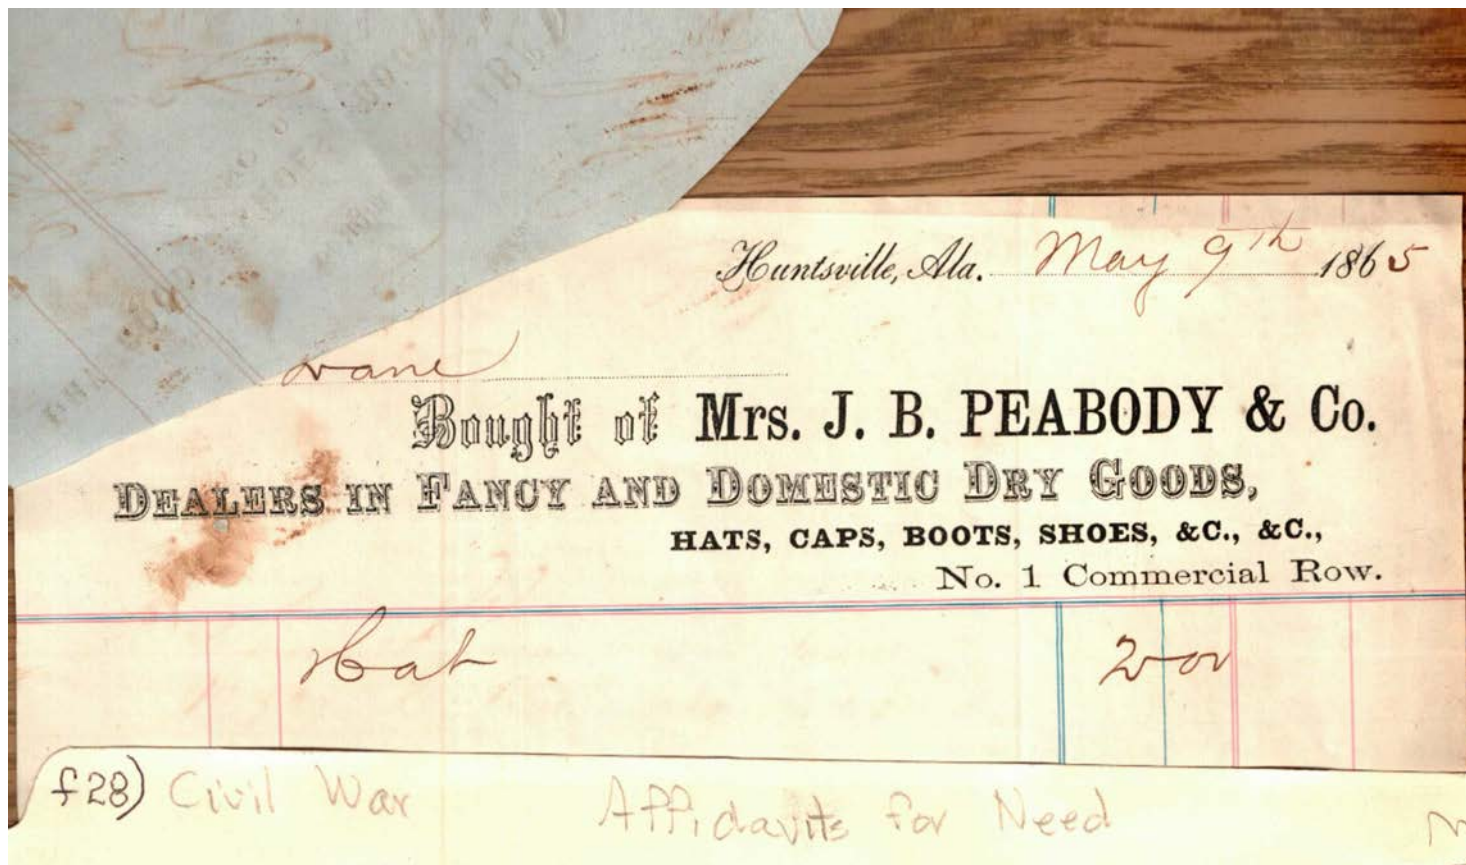 Huntsville, Ala. May 9th 1865
Bought of Mrs. J. B. PEABODY & Co.
DEALERS IN FANCY AND DOMESTIC DRY GOODS,
HATS, CAPS, BOOTS, SHOES, &C., &C.,
No. 1 Commercial Row.
Hat 200
f28) Civil War Affidavits for Need